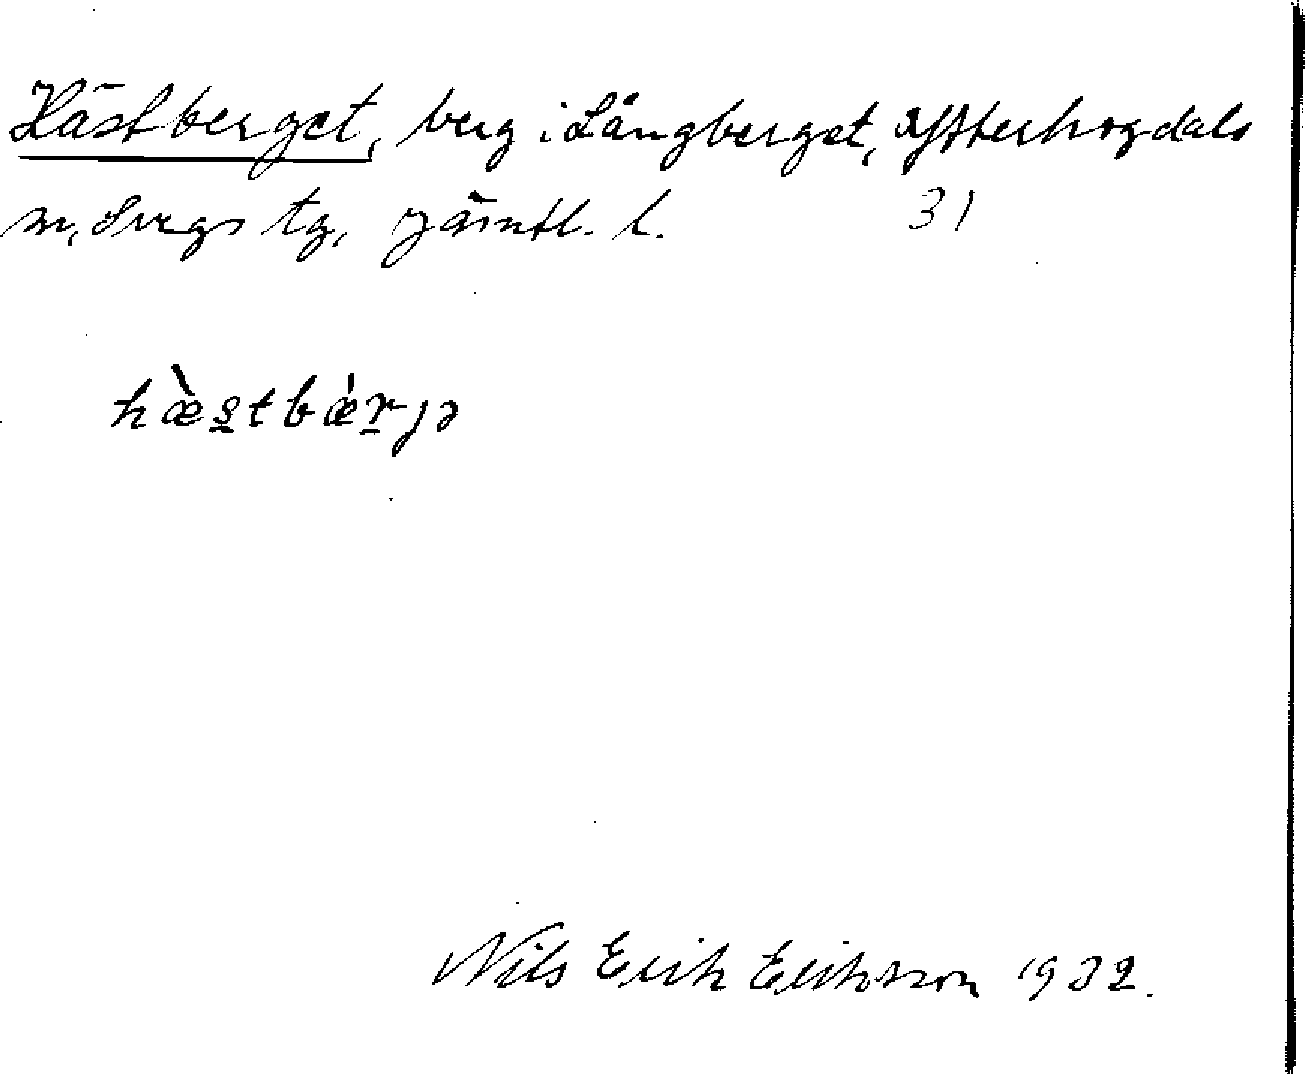 Hästberget, berg i Långberget, Ytterhogdals
sn, Svegs tg, Jämtl. l. 31
hæ̀s̲tbǽr̲jə
Nils Erik Eriksson 1932.